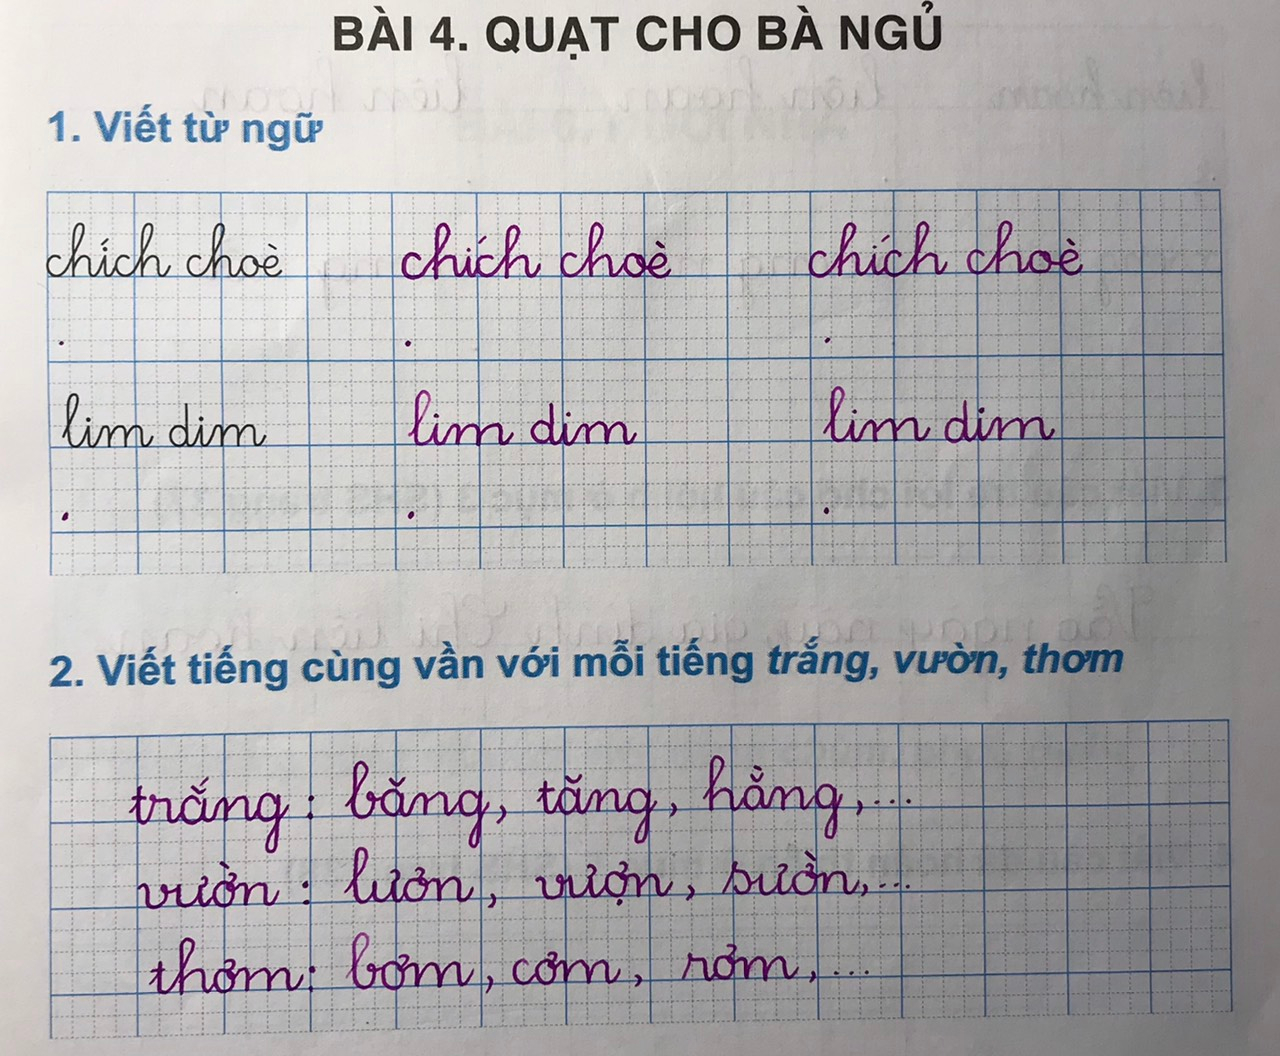 BÀI 4. QUẠT CHO BÀ NGỦ
1. Viết từ ngữ
chích choè chích choè chích choè
. . .
lim dim lim dim lim dim
. . .
2. Viết tiếng cùng vần với mỗi tiếng trắng, vườn, thơm
trắng: băng, tăng, hằng,...
vườn: lươn, vượn, sườn,...
thơm: bơm, cơm, rơm,...